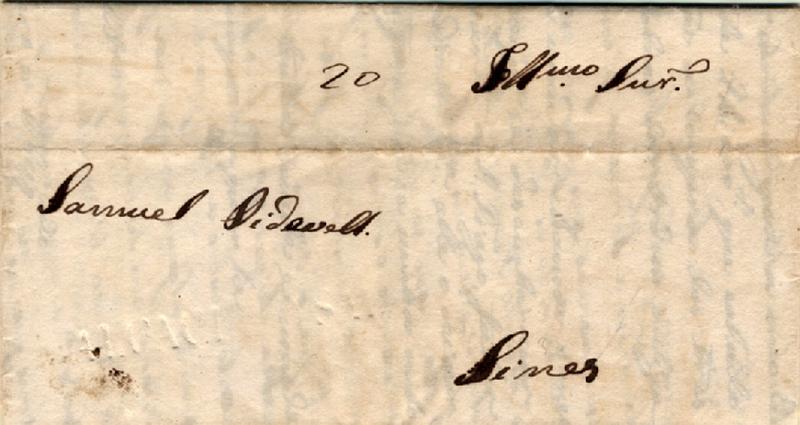 20 Illmo Snr.
Samuel Sidevell.
Sines